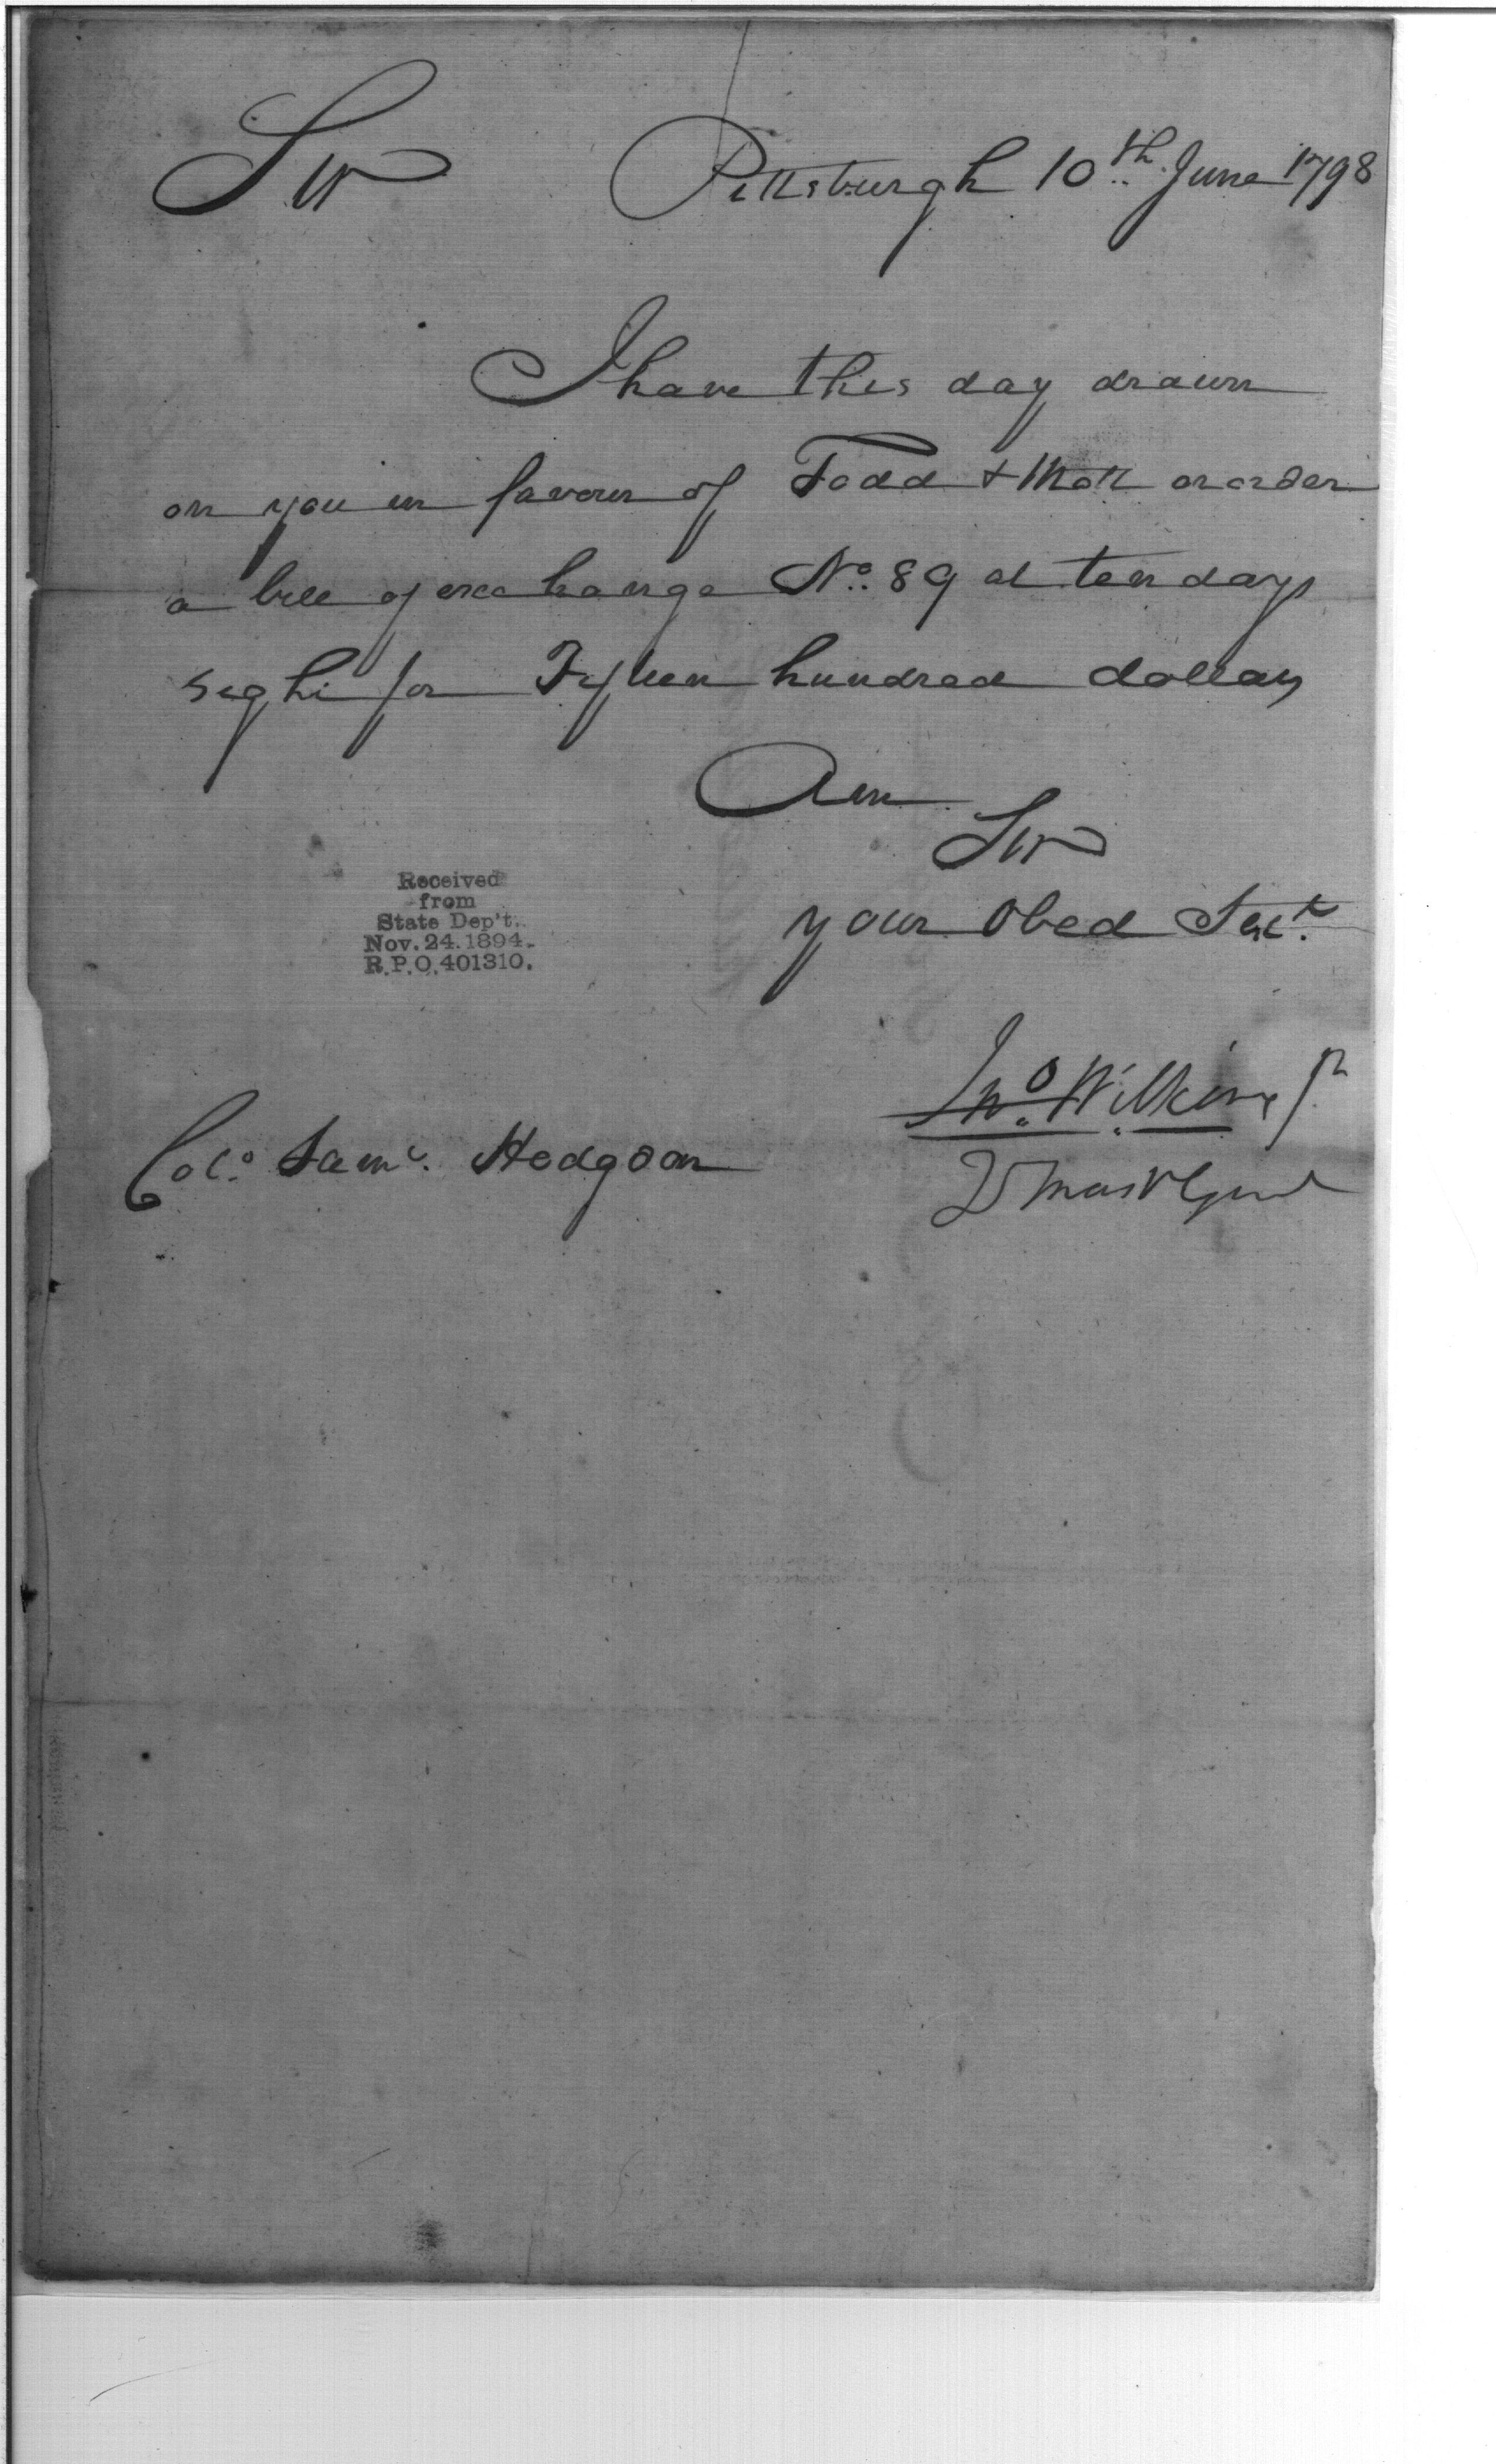 Sir Pittsburgh 10th June 1798
I have this day drawn
on you in favour of Todd & Mott or order
a bill of exchange No. 89 at ten days
sight for Fifteen hundred dollars
Am
Sir
your Obed Sert.
Received
from
State Dep't.
Nov. 24. 1894.
R.P.O. 401310.
Jno. Wilkins Jr
Col. Saml. Hodgdon
QrMastrGenl